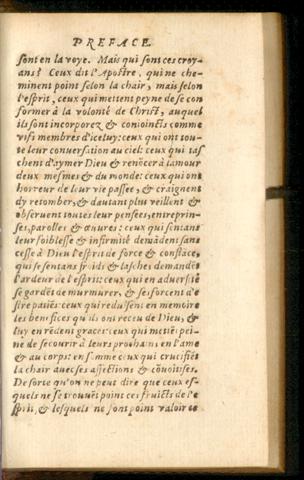 PREFACE.
sont en la voye. Mais qui sont ces croy-
ans? Ceux dit l'Apostre, qui ne che-
minent point selon la chair, mais selon
l'esprit, ceux qui mettent peyne de se con
former à la volonté de Christ, auquel
ils sont incorporez & conioincts comme
vifs membres d'iceluy: ceux qui ont tou-
te leur conuersation au ciel: ceux qui tas
chent d'aymer Dieu & renõcer à lamour
deux mesmes & du monde: ceux qui ont
horreur de leur vie passee, & craignent
dy retomber, & dautant plus veillent &
obseruent toutes leur pensees, entreprin-
ses, parolles & œuures: ceux qui sentans
leur foiblesse & infirmité demãdent sans
cesse à Dieu l'esprit de force & constãce,
qui se sentans froids & lasches demandẽt
l'ardeur de l'esprit: ceux qui en aduersité
se gardẽt de murmurer, & se efforcent d'e
stre patiẽs: ceux qui redusent en memoire
les benefices qu'ils ont receu de Dieu, &
luy en rẽdent graces: ceux qui mettẽt pei-
ne de secourir à leurs prochains en l'ame
& au corps: en somme ceux qui crucifiẽt
la chair auec ses affections & cõuoitises.
De sorte qu'on ne peut dire que ceux es-
quels ne se trouuẽt point ces fruicts de l'e
sprit, & lesquels ne sont point valoir ce